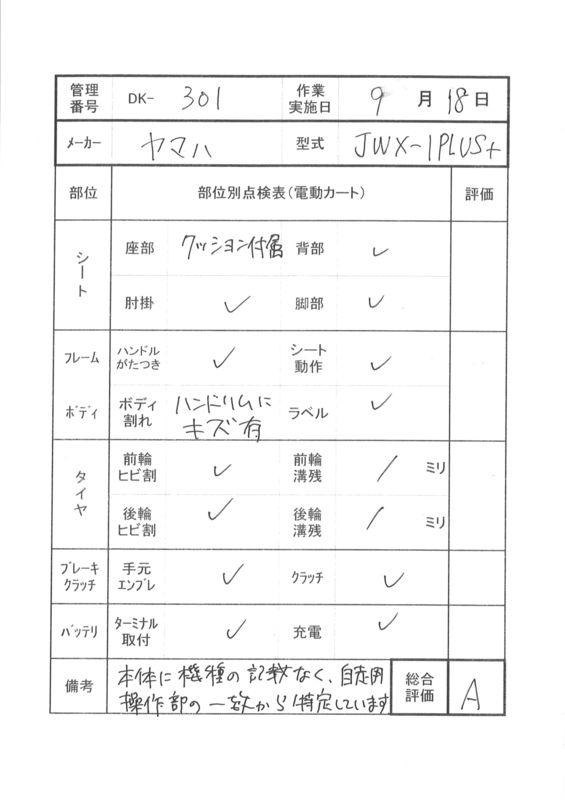 管理番号 DK- 301 作業実施日 9 月 18 日
メーカー ヤマハ 型式 JWX-1PLUS+
部位 部位別点検表(電動カート) 評価
シート 座部 クッション付属 背部 ✓
肘掛 ✓ 脚部 ✓
フレーム ハンドルがたつき ✓ シート動作 ✓
ボディ ボディ割れ ハンドリムにキズ有 ラベル ✓
タイヤ 前輪ヒビ割 ✓ 前輪溝残 / ミリ
後輪ヒビ割 ✓ 後輪溝残 / ミリ
ブレーキクラッチ 手元エンブレ ✓ クラッチ ✓
バッテリ ターミナル取付 ✓ 充電 ✓
備考 本体に機種の記載なく、自走用
操作部の一致から特定しています
総合評価 A